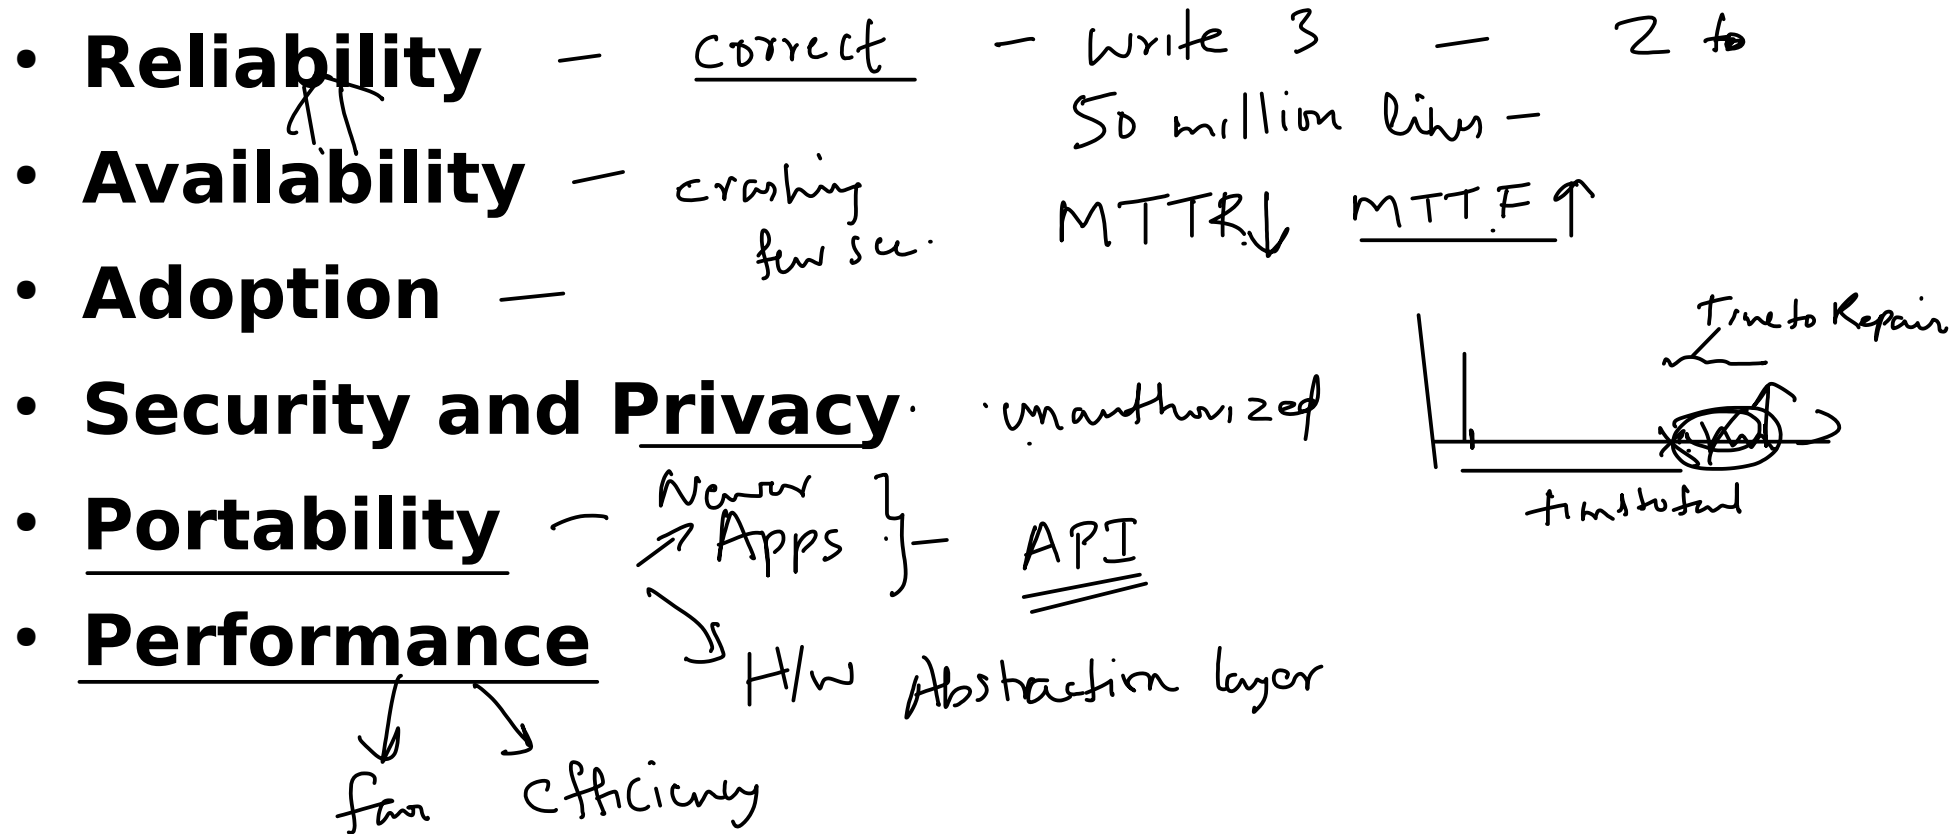 • Reliability — correct — write 3 — 2 to
50 million lines —
• Availability — crashing
few sec.
MTTR↓ MTTF↑
• Adoption —
Time to Repair
• Security and Privacy unauthorized
time to fail
• Portability — Apps } — API
H/W Abstraction layer
• Performance
efficiency